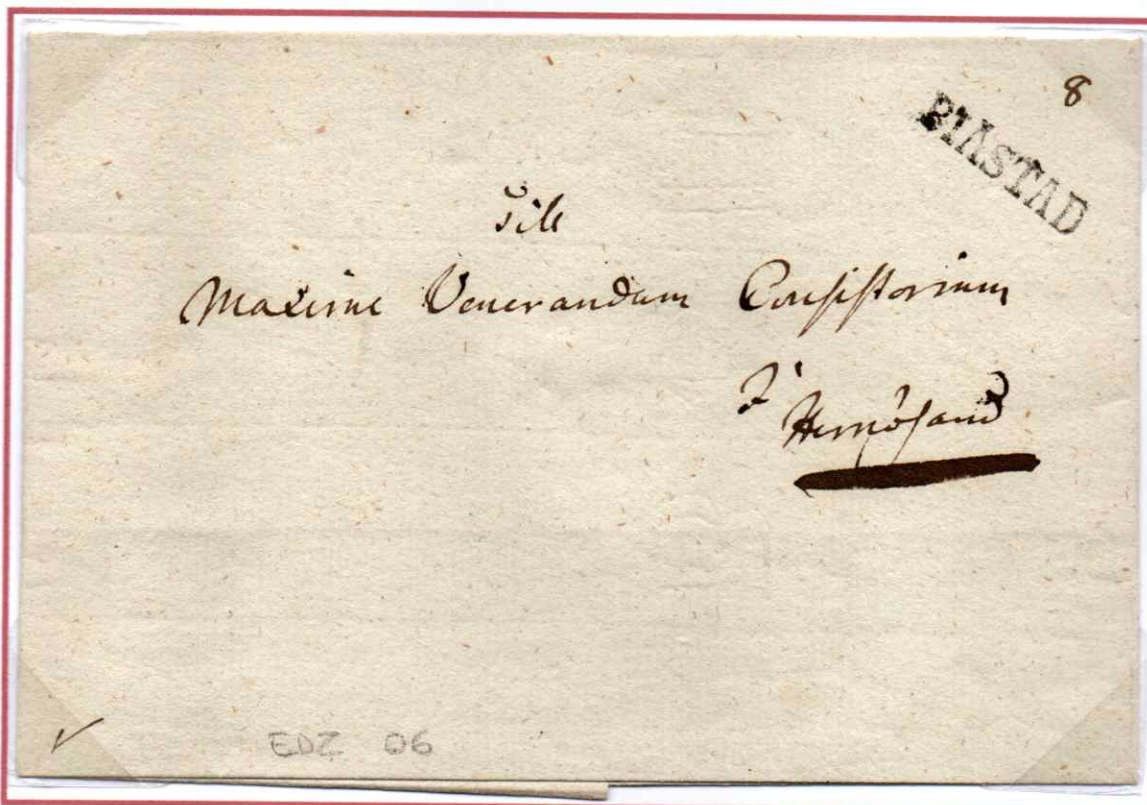 8
PIASTAD
Till
Maxime Venerandum Consistorium
I
Hernösand
EDZ 06